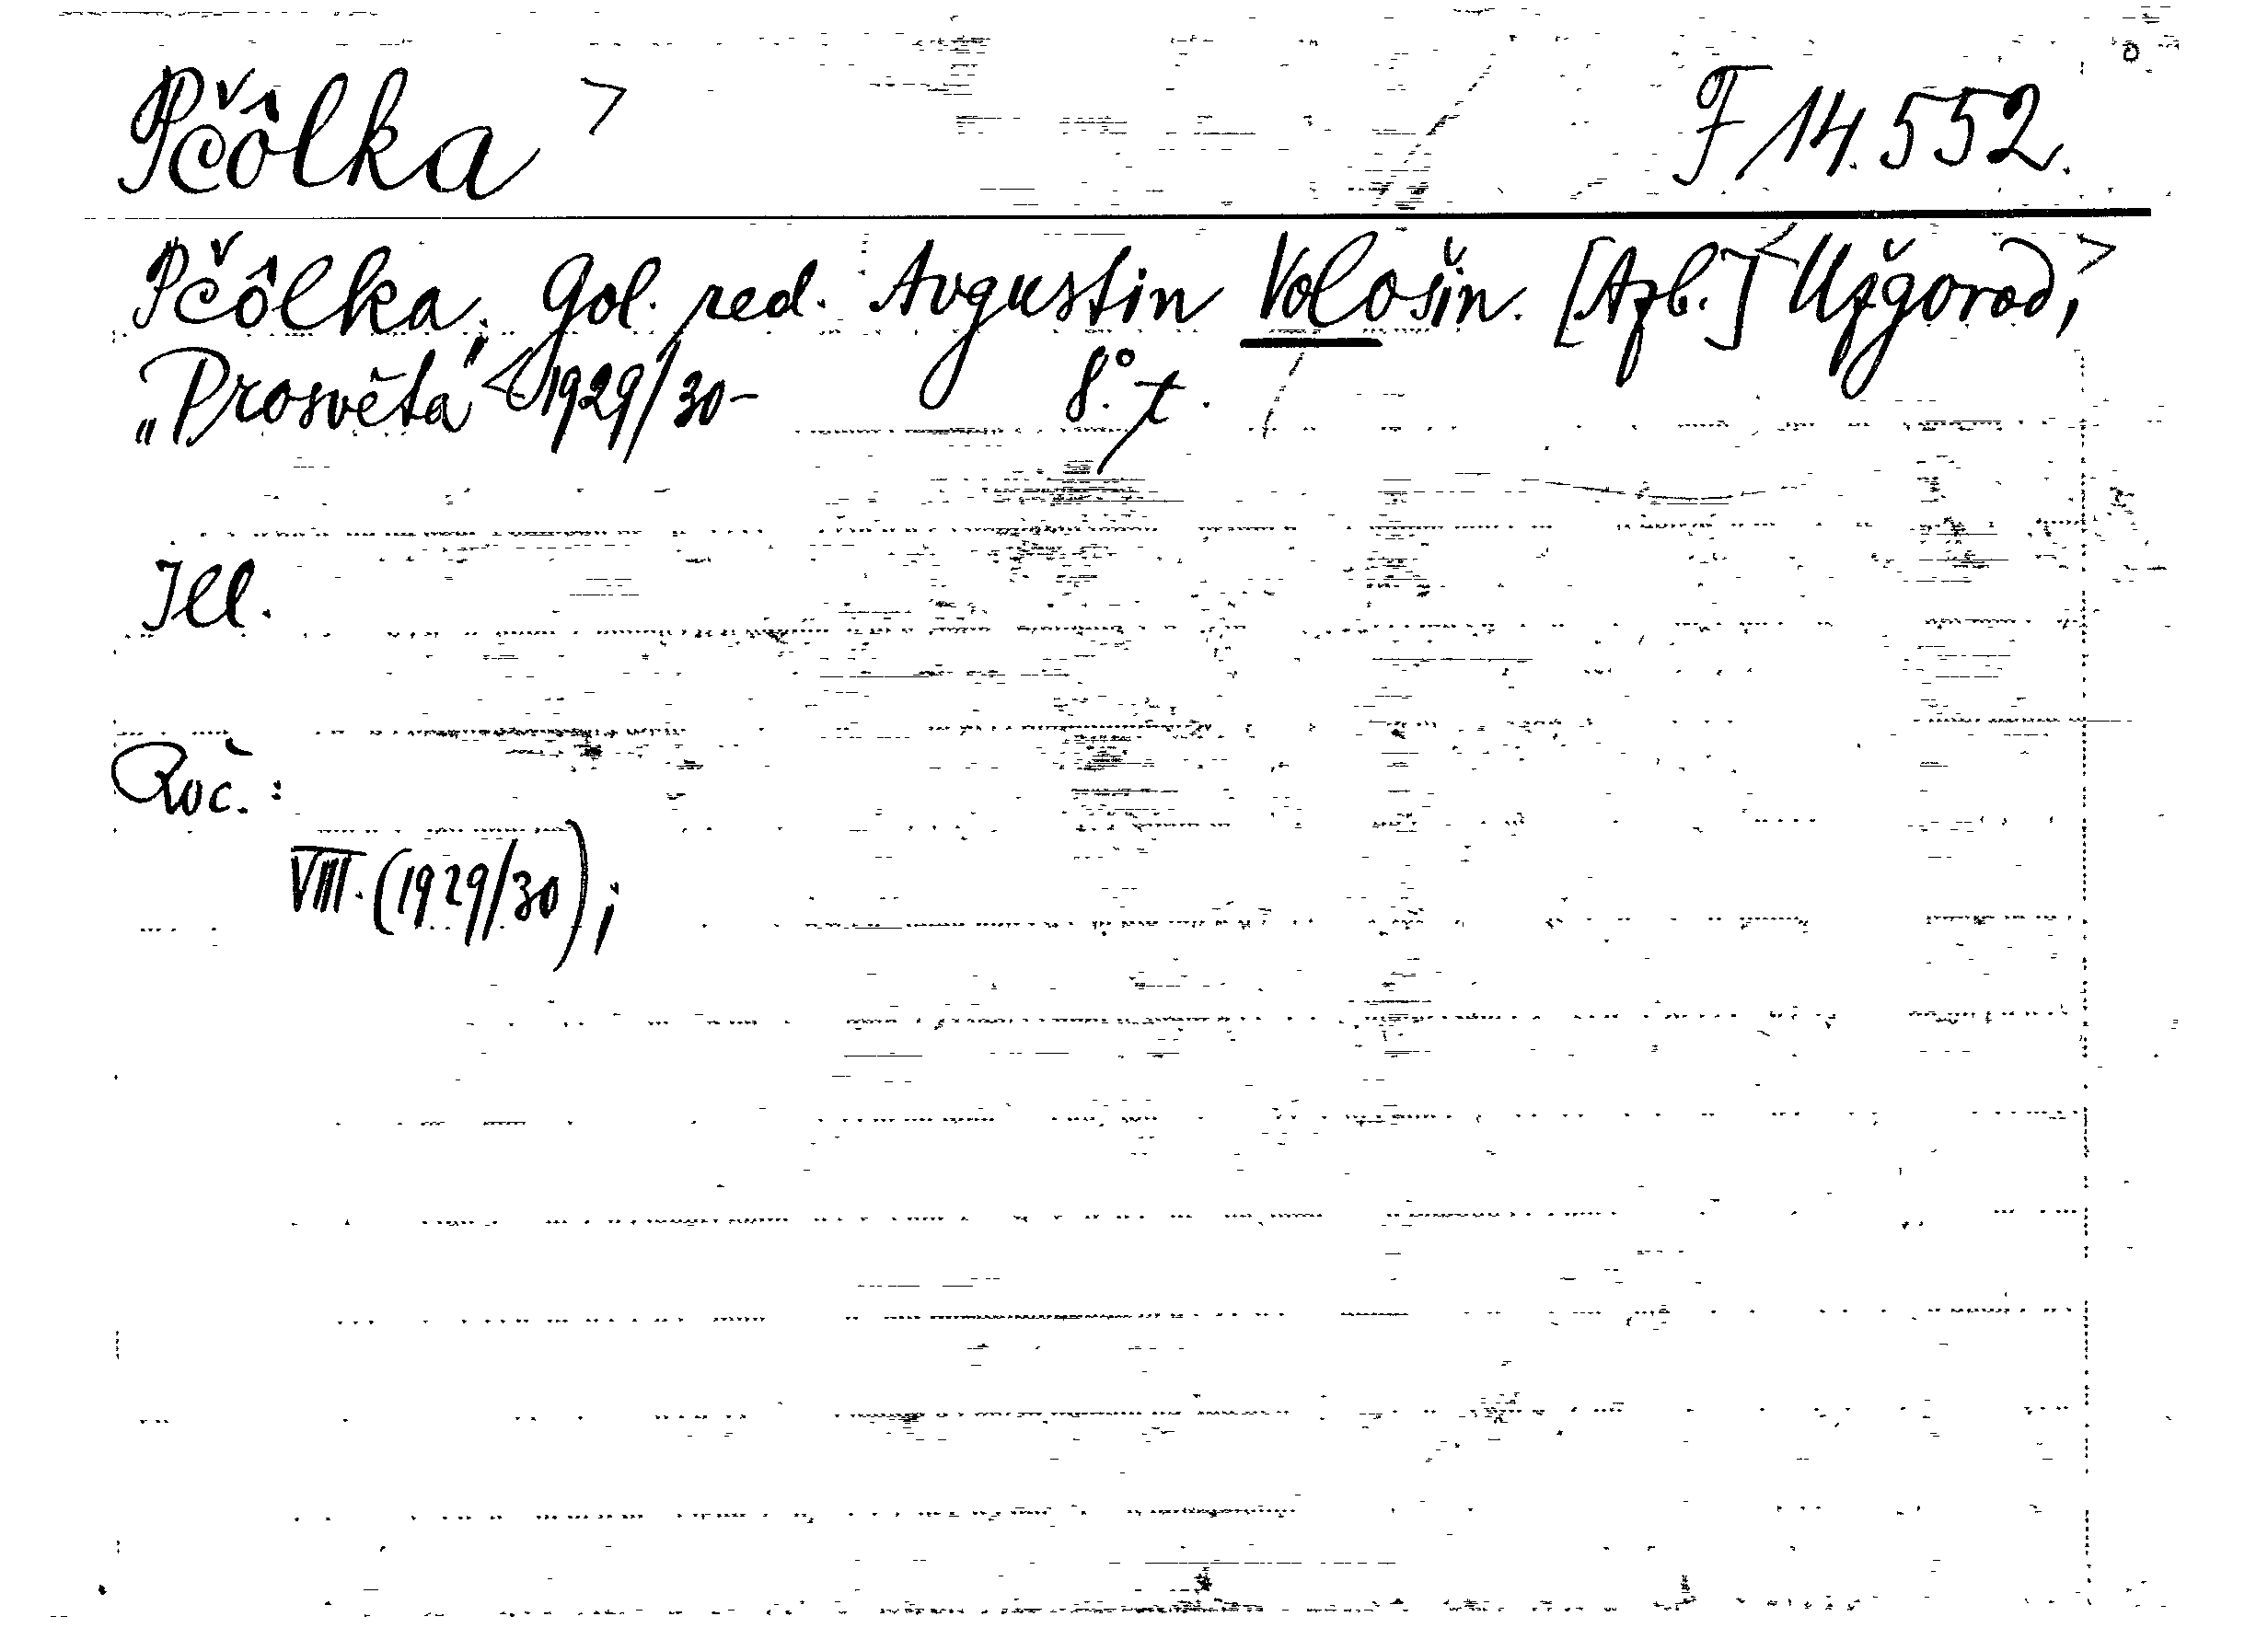 Pčôlka > F 14.552.
Pčôlka. Gol. red. Avgustin Vološin. [Azb.] <Užgorod,>
„Prosvěta" < 1929/30- 8°. t.
Ill.
Roč.:
VIII. (1929/30);